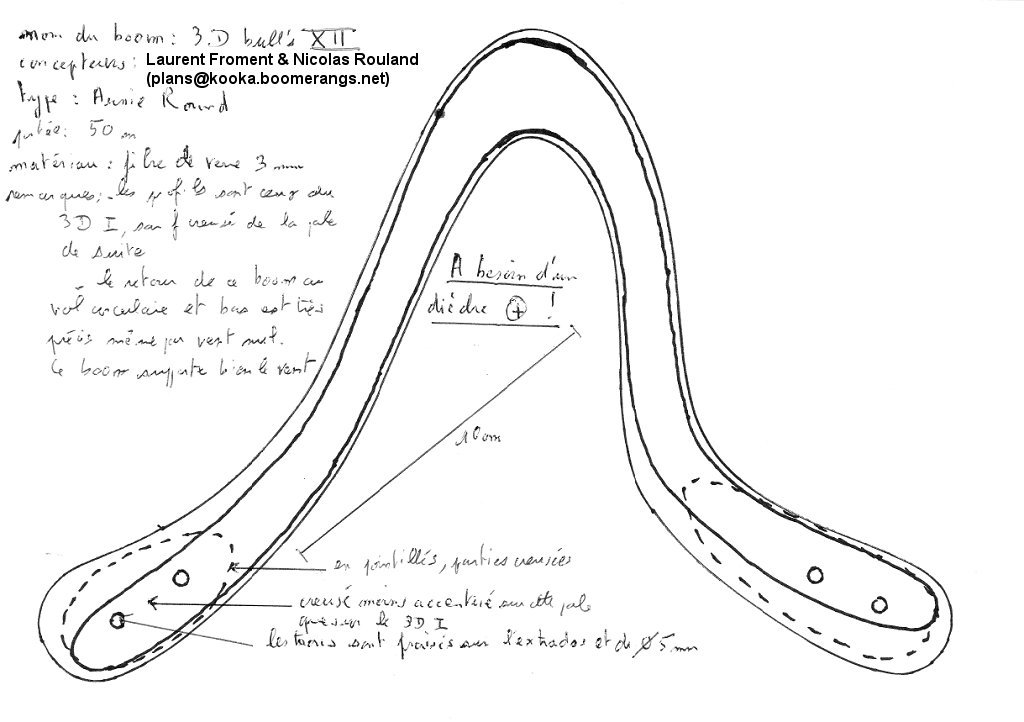 nom du boom: 3D bull's XII
concepteurs: Laurent Froment & Nicolas Rouland
(plans@kooka.boomerangs.net)
type: Aussie Round
portée: 50 m
matériau: fibre de verre 3 mm
remarques: - les profils sont ceux du
3D I, sauf creusé de la pale
de suite
- le retour de ce boom au
vol circulaire et bas est très
précis même par vent nul.
Ce boom supporte bien le vent
A besoin d'un
dièdre + !
10 cm
en pointillés, parties creusées
creusé moins accentué sur cette pale
que sur le 3D I
les trous sont fraisés sur l'extrados et de Ø 5 mm